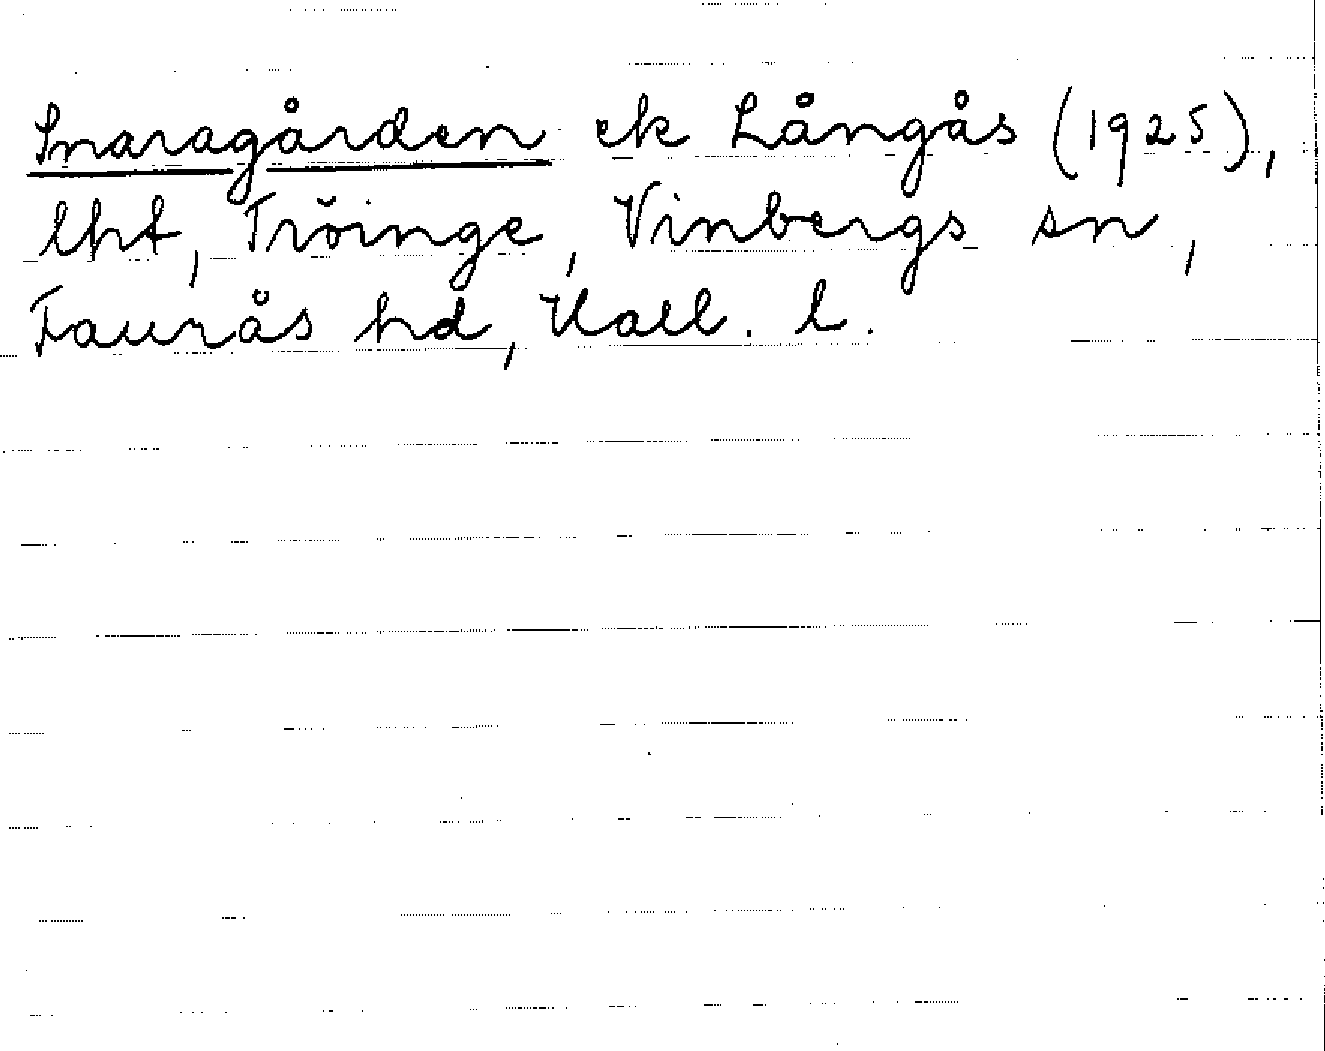 Snaragården ek Långås (1925),
lht, Tröinge, Vinbergs sn,
Faurås hd, Hall. l.